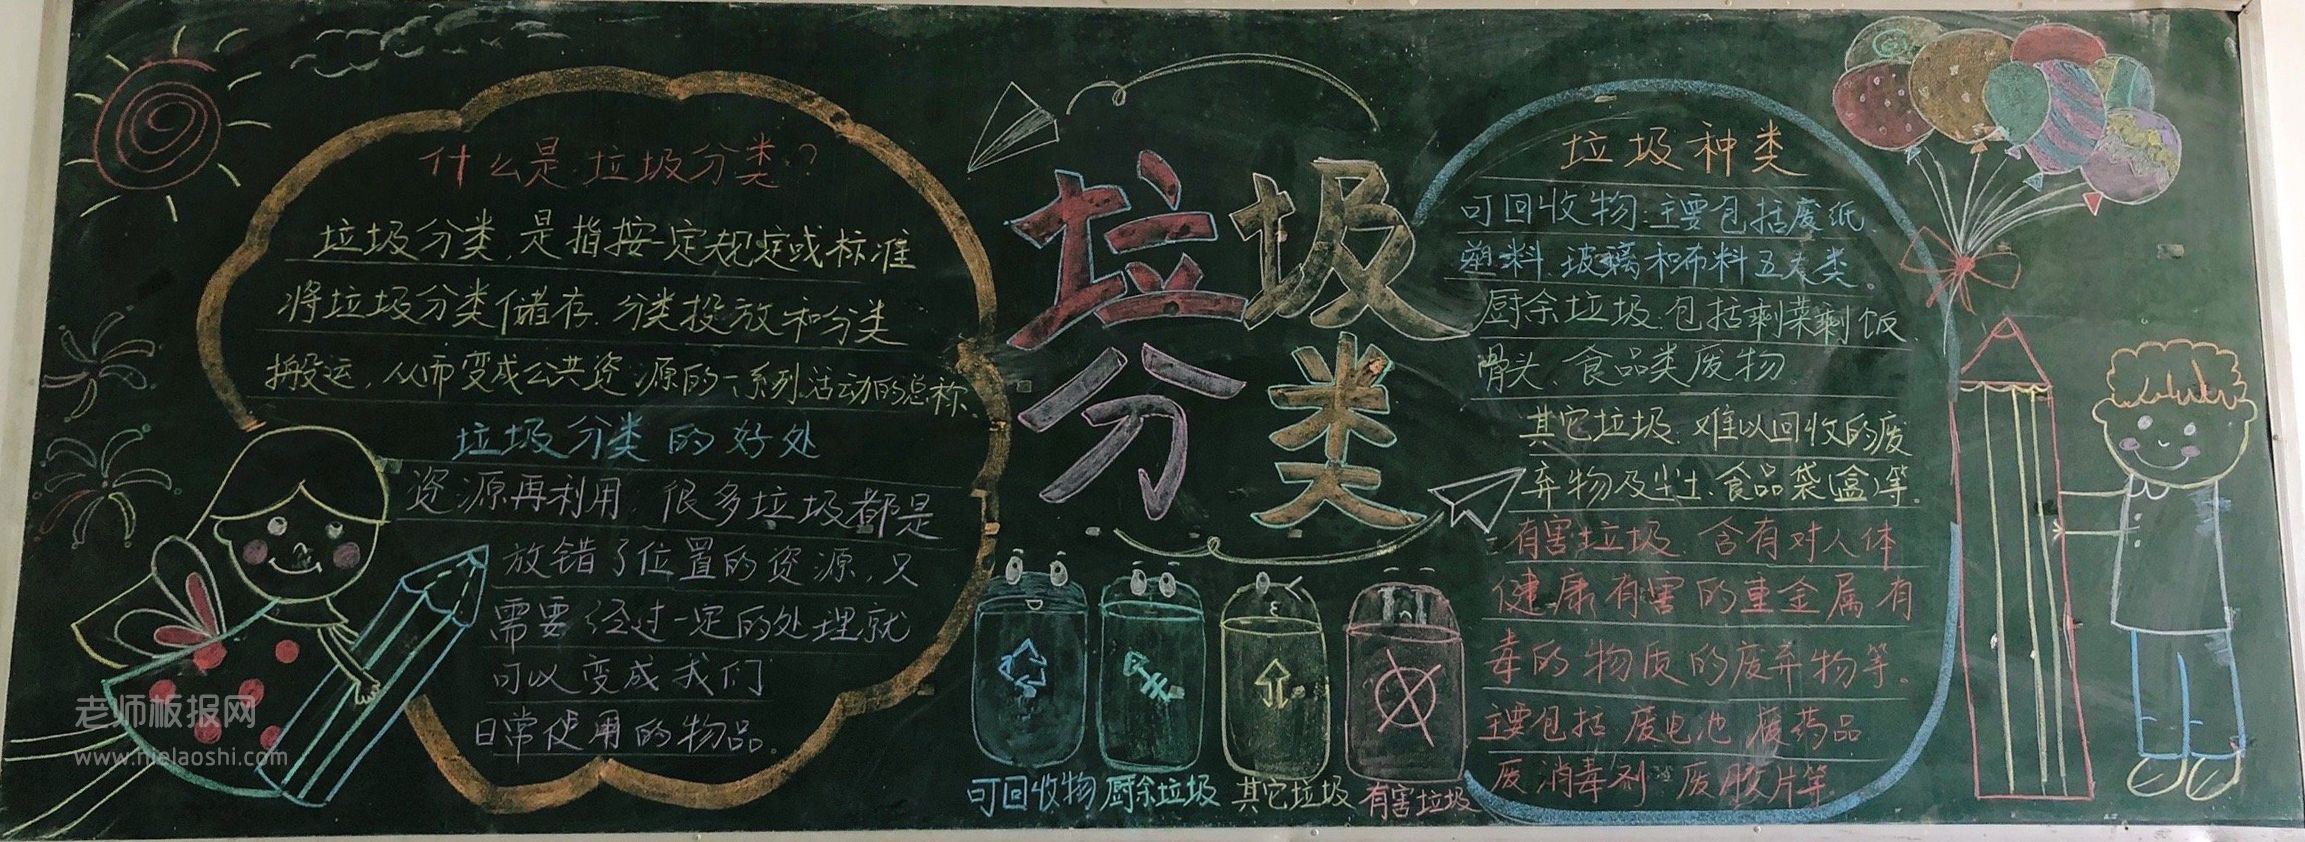 什么是垃圾分类?
垃圾分类,是指按一定规定或标准
将垃圾分类储存、分类投放和分类
搬运,从而变成公共资源的一系列活动的总称。
垃圾分类的好处
资源再利用,很多垃圾都是
放错了位置的资源,只
需要经过一定的处理就
可以变成我们
日常使用的物品。
垃圾
分类
可回收物
厨余垃圾
其它垃圾
有害垃圾
垃圾种类
可回收物:主要包括废纸、
塑料、玻璃和布料五大类。
厨余垃圾:包括剩菜剩饭、
骨头、食品类废物。
其它垃圾:难以回收的废
弃物及尘土、食品袋(盒)等。
有害垃圾:含有对人体
健康有害的重金属有
毒的物质的废弃物等。
主要包括废电池 废药品
废消毒剂 废胶片等
老师板报网
www.hielaoshi.com